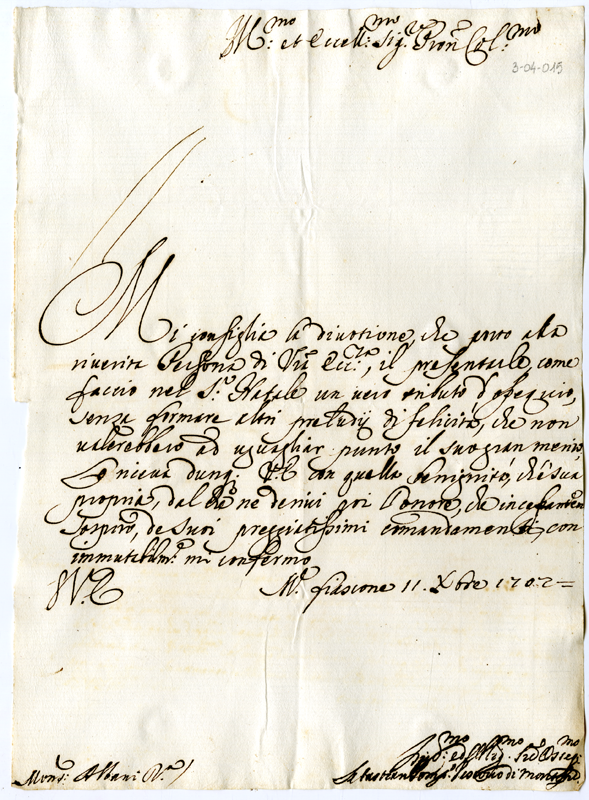 Ill.mo et Eccell.mo Sig.r Pron Col.mo
3-04-015
Mi consiglia la divotione, che porto alla
riverita Persona di Vra Ecc.za, il presentarle, come
faccio nel S.o Natale un vero tributo d'ossequio,
senza formare altri preludij di felicità, che non
valerebbero ad uguagliar punto il suo gran merito.
Lo riceva dunq. V.E. con quella benignità, ch'è sua
propria, dal che ne derivi poi l'onore, che incessantem.
sospiro, de suoi preggiatissimi comandamenti, con
immutabilm.e mi confermo
V.E. M.e fiascone 11. Xbre 1702=
Mons.r Albani R.a
Sebastiano Vescovo di Montef.